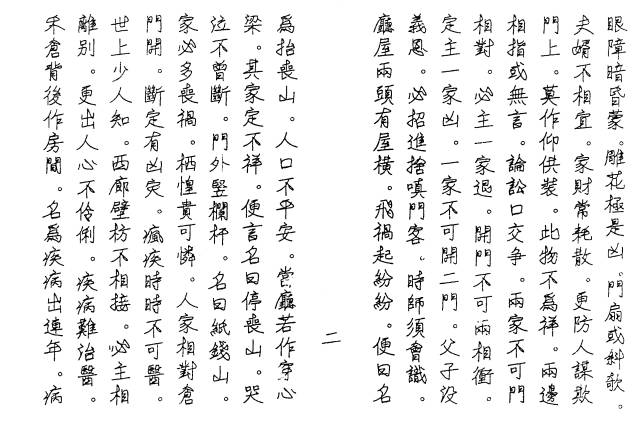 眼障暗昏蒙。雕花極是凶。門扇或斜欹。
夫婦不相宜。家財常耗散。更防人謀欺
門上。莫作仰供裝。此物不為祥。兩邊
相指或無言。論訟口交爭。兩家不可門
相對。必主一家退。開門不可兩相衝。
定主一家凶。一家不可開二門。父子沒
義恩。必招進捨嗔門客。時師須會識。
廳屋兩頭有屋橫。飛禍起紛紛。便曰名
二
為抬喪山。人口不平安。當廳若作穿心
梁。其家定不祥。便言名曰停喪山。哭
泣不曾斷。門外竪欄杆。名曰紙錢山。
家必多喪禍。栖惶貴可憐。人家相對倉
門開。斷定有凶灾。瘋疾時時不可醫。
世上少人知。西廊壁枋不相接。必主相
離别。更出人心不伶俐。疾病難治醫。
禾倉背後作房間。名為疾病出連年。病